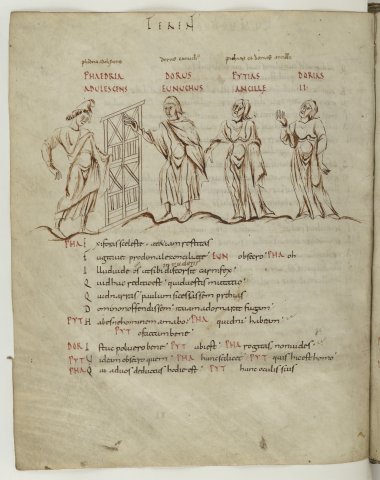 TEREN
phedria adulescens dorus eunuch pythias et dorias ancille
PHAEDRIA DORUS PYTIAS DORIAS
ADULESCENS EUNUCHUS ANCILLE II
PHA E xiforas sceleste at etiam restitas
F ugitive prodi male conciliate EUN obsecro PHA oh
I llud vide os ut sibi distorsit carnifex
Q uid huc reditio est quid vestis mutatio
Q uid narras paulum si cessassem pythias
D omi non offendissem ita iam adornarat fugam
PYT H aben hominem amabo PHA quidni habeam
PYT o factum bene
DOR I stuc pol vero bene PYT ubi est PHA rogitas non vides
PYT V ideam obsecro quem PHA hunc scilicet PYT quis hic est homo
PHA Q ui ad vos deductus hodie est PYT hunc oculis suis